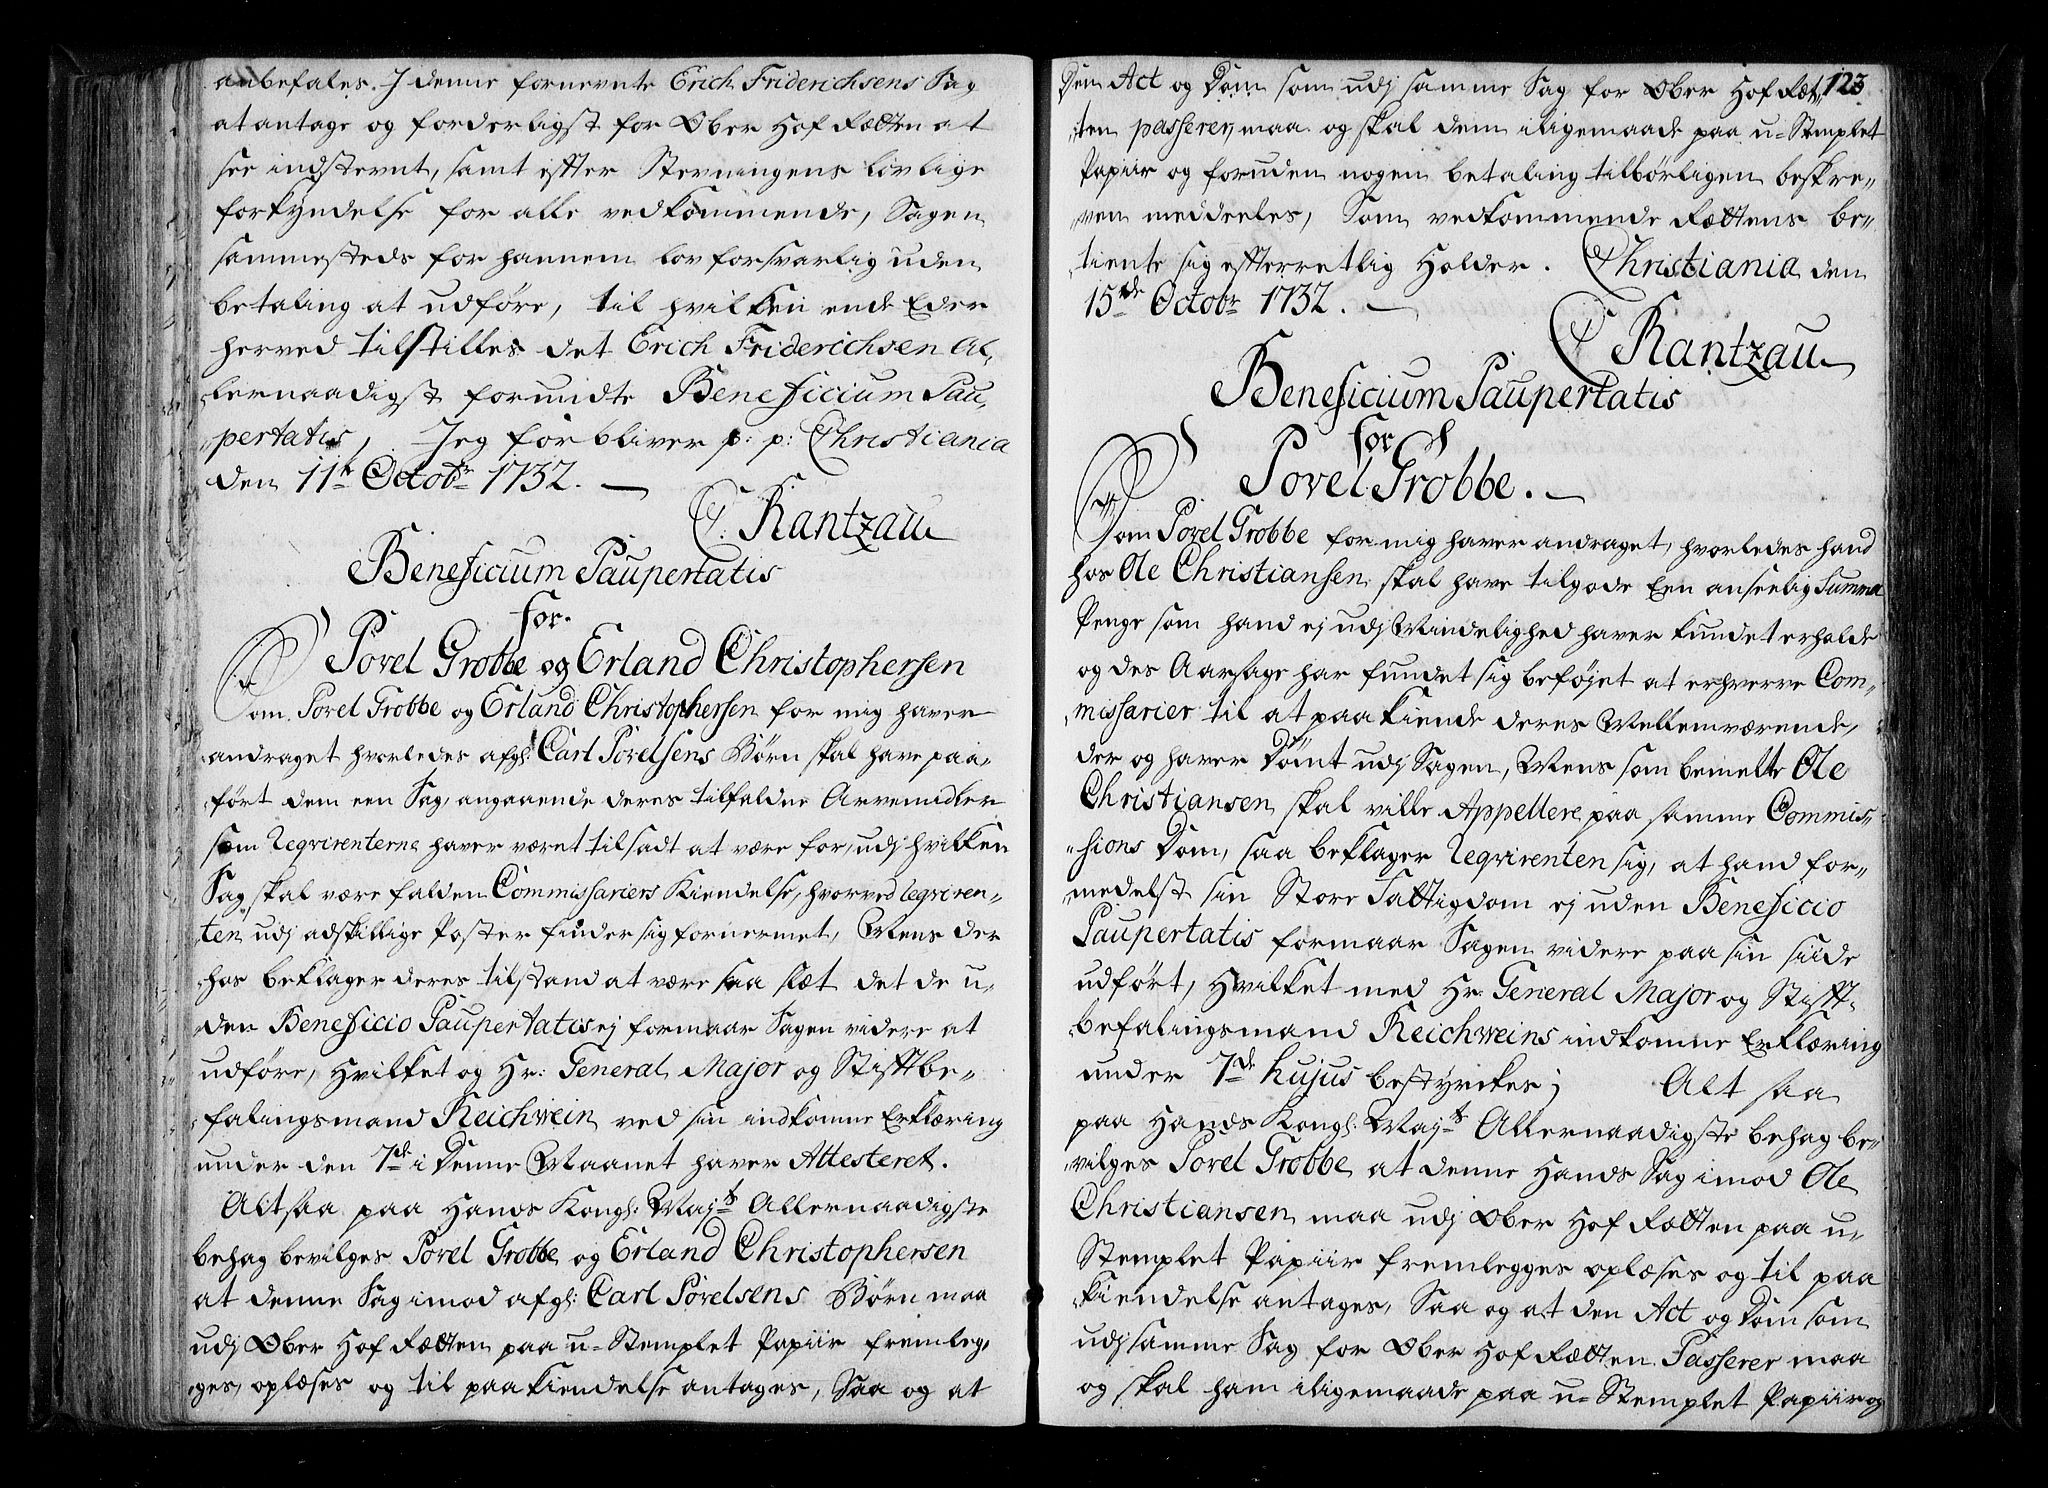 anbefales. I denne fornevnte Erich Friderichsens Sag
at antage og forderligst for Ober Hof Rætten at
see indstevnt, samt efter Stevningens lovlige
forkyndelse for alle vedkommende, Sagen
sammesteds for hannem lovforsvarlig uden
betaling at udføre, til hvilken ende Eder
herved tilstilles det Erich Friderichsen Al-
lernaadigst forundte Beneficium Pau-
pertatis, Jeg forbliver p: p: Christiania
den 11te Octobr 1732. —
C. Rantzau
Beneficium Paupertatis
for
Povel Grobbe og Erland Christophersen
Som Povel Grobbe og Erland Christophersen for mig haver
andraget hvorledes afgl: Carl Povelsens Børn skal have paa-
ført dem een Sag, angaaende deres tilfaldne Arvemidler
som Reqvirenterne haver været tilsadt at være for, udj hvilken
Sag skal være falden Commissariers Kiendelse, hvorved reqviren-
ten udj adskillige Poster finder sig fornermet, Mens der
hos beklager deres tilstand at være saa slæt det de u-
den Beneficio Paupertatis ej formaar Sagen videre at
udføre, Hvilket og Hr: General Major og Stiftbe-
falingsmand Reichwein ved sin indkomne Erklæring
under den 7de i denne Maanet haver Attesteret.
Alt saa paa Hands Kongl: Majts Allernaadigste
behag bevilges Povel Grobbe og Erland Christophersen
at denne Sag imod afgl: Carl Povelsens Børn maa
udj Ober Hof Rætten paa u-Stemplet Papiir fremleg-
ges, oplæses og til paakiendelse antages, Saa og at
123
Den Act og Dom som udj samme Sag for Ober Hof Ræt-
ten passerer, maa og skal dem iligemaade paa u-Stemplet
Papiir og foruden nogen betaling tilbørligen beskre-
ven meddeeles, Som vedkommende Rættens be-
tiente sig efterretlig Holder. Christiania den
15de Octobr 1732. —
C Rantzau
Beneficium Paupertatis
for
Povel Grobbe. —
Som Povel Grobbe for mig haver andraget, hvorledes hand
hos Ole Christiansen skal have tilgode Een anseelig Summa
Penge som hand ej udj Mindelighed haver kundet erholde
og des Aarsage har fundet sig beføjet at erhverve Com-
missarier til at paakiende deres Mellemværende,
der og haver Dømt udj Sagen, Mens som bemelte Ole
Christiansen skal ville Appellere paa samme Commis-
sions Dom, saa beklager Reqvirenten sig, at hand for-
medelst sin Store Fattigdom ej uden Beneficio
Paupertatis formaar Sagen videre paa sin siide
udført, Hvilket med Hr: General Major og Stift-
befalingsmand Reichweins indkomne Erklæring
under 7de hujus bestyrckes; Alt saa
paa Hands Kongl: Majts Allernaadigste behag be-
vilges Povel Grobbe at denne Hands Sag imod Ole
Christiansen maa udj Ober Hof Rætten paa u-
Stemplet Papiir fremlegges oplæses og til paa
kiendelse antages, Saa og at den Act og Dom som
udj samme Sag for Ober Hof Rætten Passerer maa
og skal ham iligemaade paa u-Stemplet Papiir og